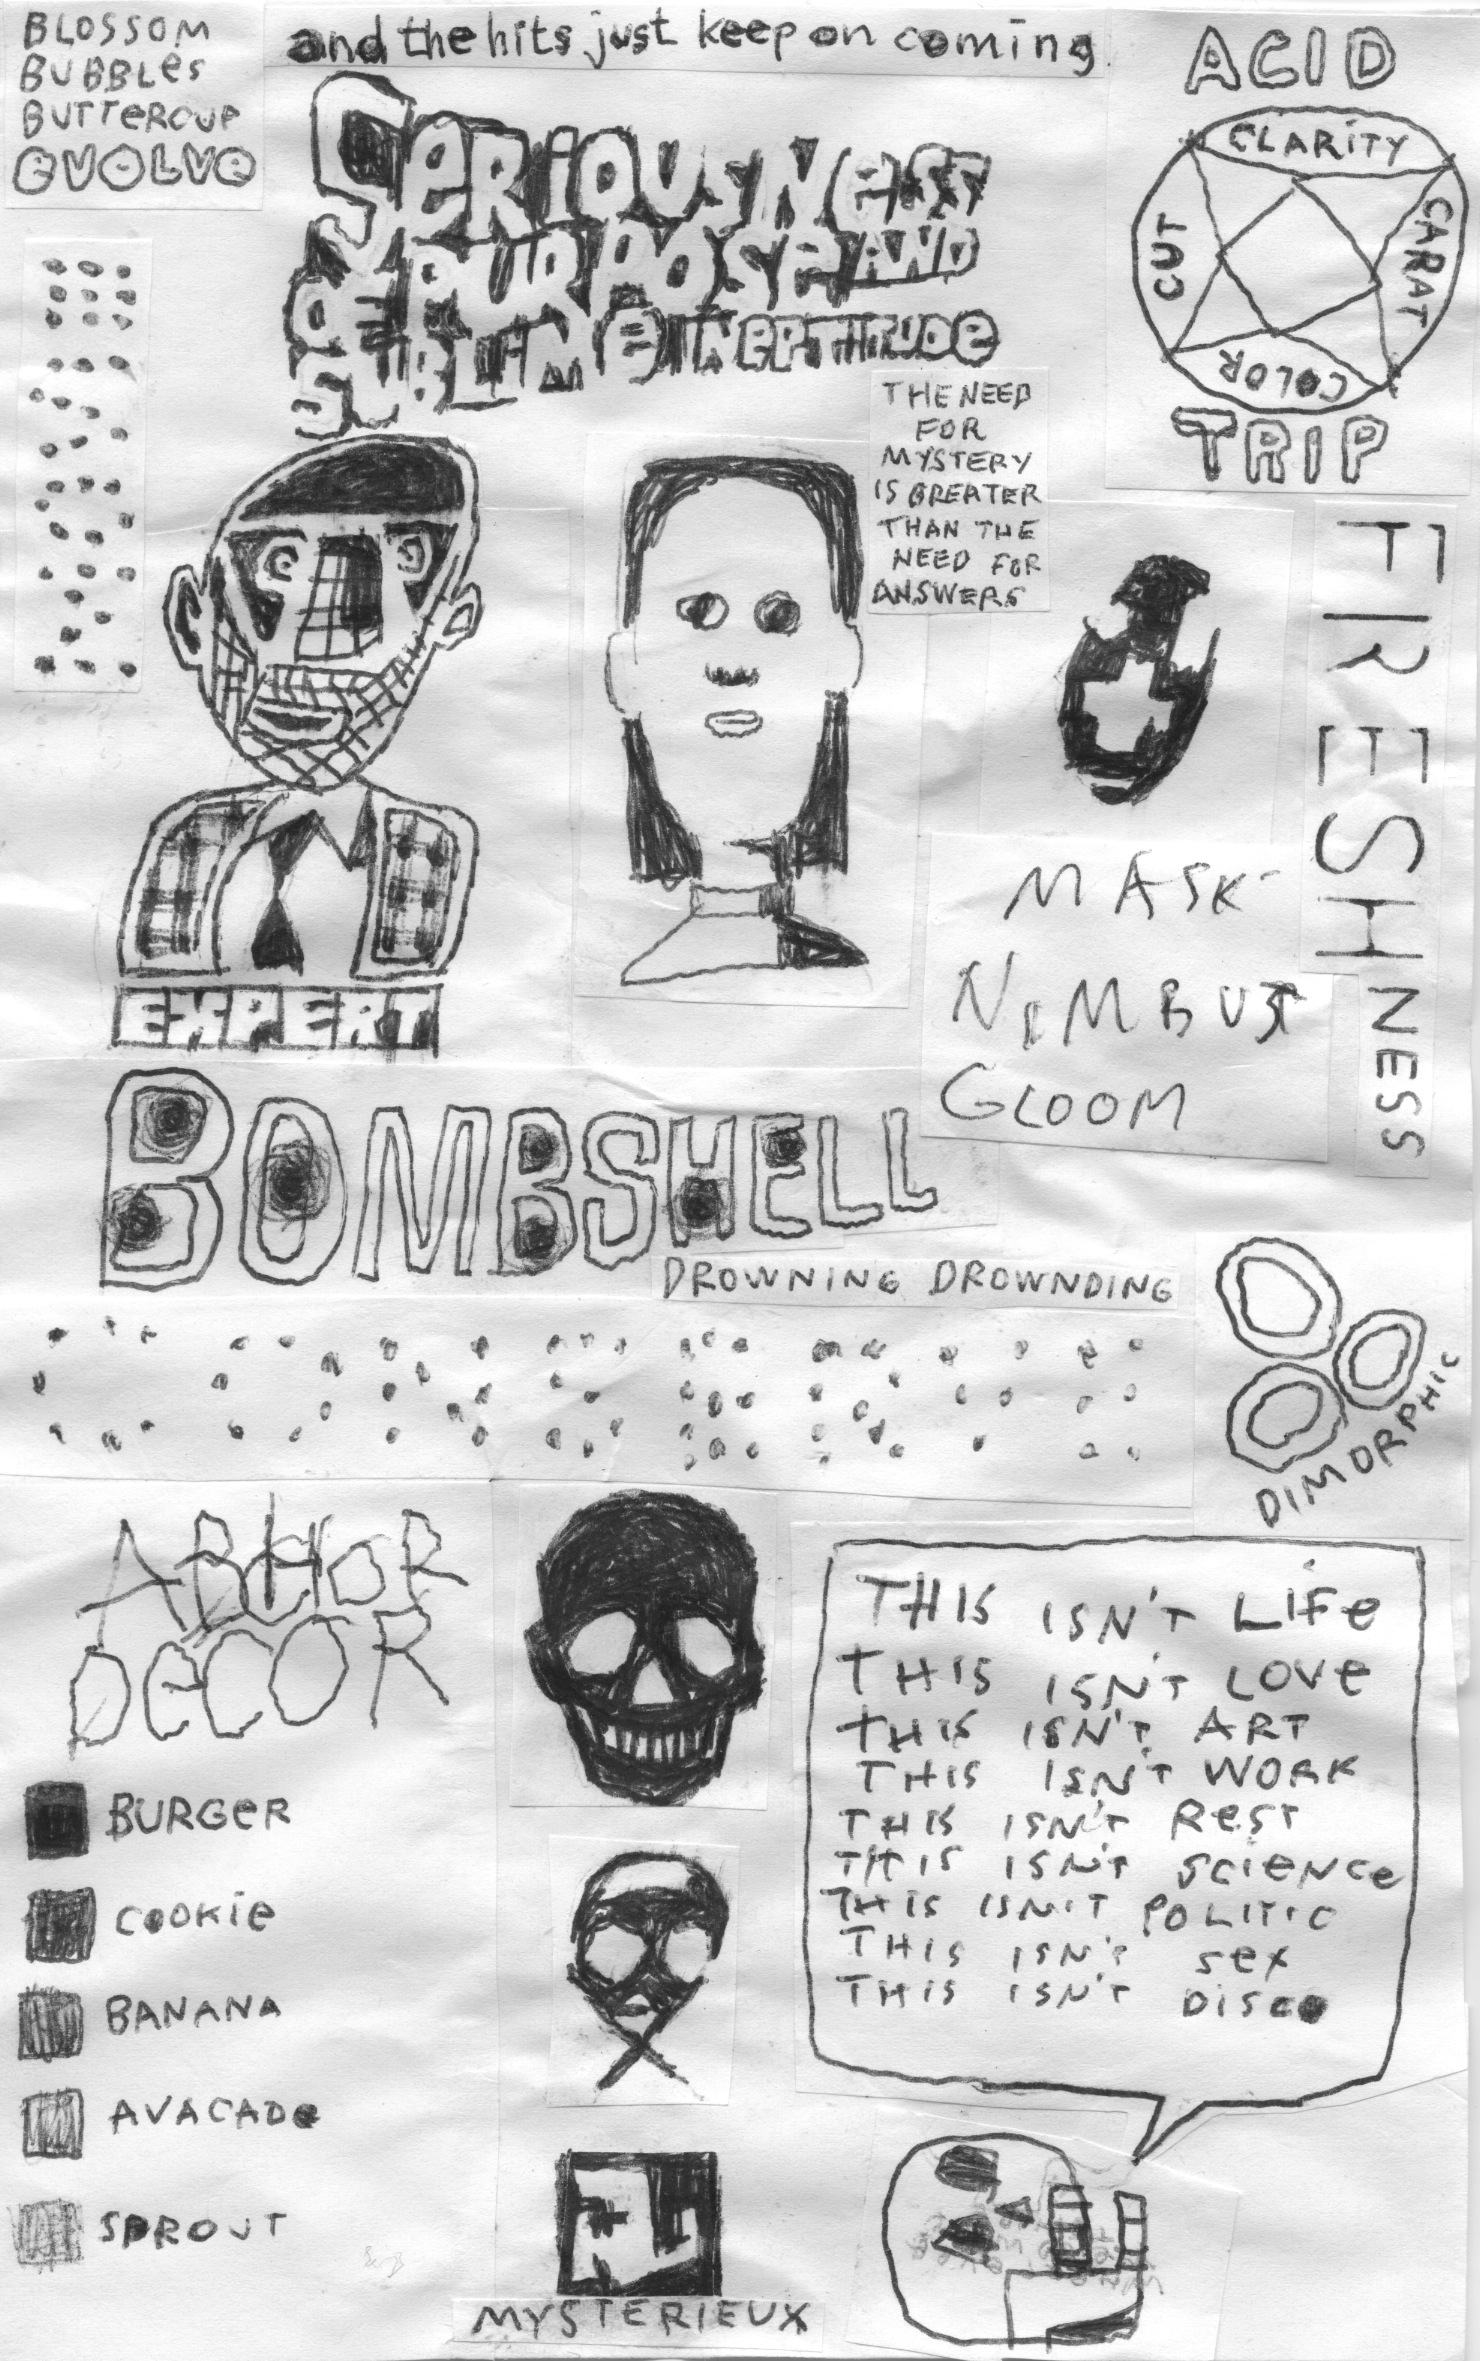 BLOSSOM
BUBBLES
BUTTERCUP
EVOLVE
and the hits just keep on coming
SERIOUSNESS
OF PURPOSE AND
SUBLIME INEPTITUDE
ACID
CLARITY
CARAT
COLOR
CUT
TRIP
THE NEED
FOR
MYSTERY
IS GREATER
THAN THE
NEED FOR
ANSWERS
FIRESHNESS
EXPERT
MASK
NIMBUST
GLOOM
BOMBSHELL
DROWNING DROWNDING
DIMORPHIC
ABHOR
DECOR
BURGER
COOKIE
BANANA
AVACADO
SPROUT
THIS ISN'T LIFE
THIS ISN'T LOVE
THIS ISN'T ART
THIS ISN'T WORK
THIS ISN'T REST
THIS ISN'T SCIENCE
THIS ISN'T POLITIC
THIS ISN'T SEX
THIS ISN'T DISCO
MYSTERIEUX